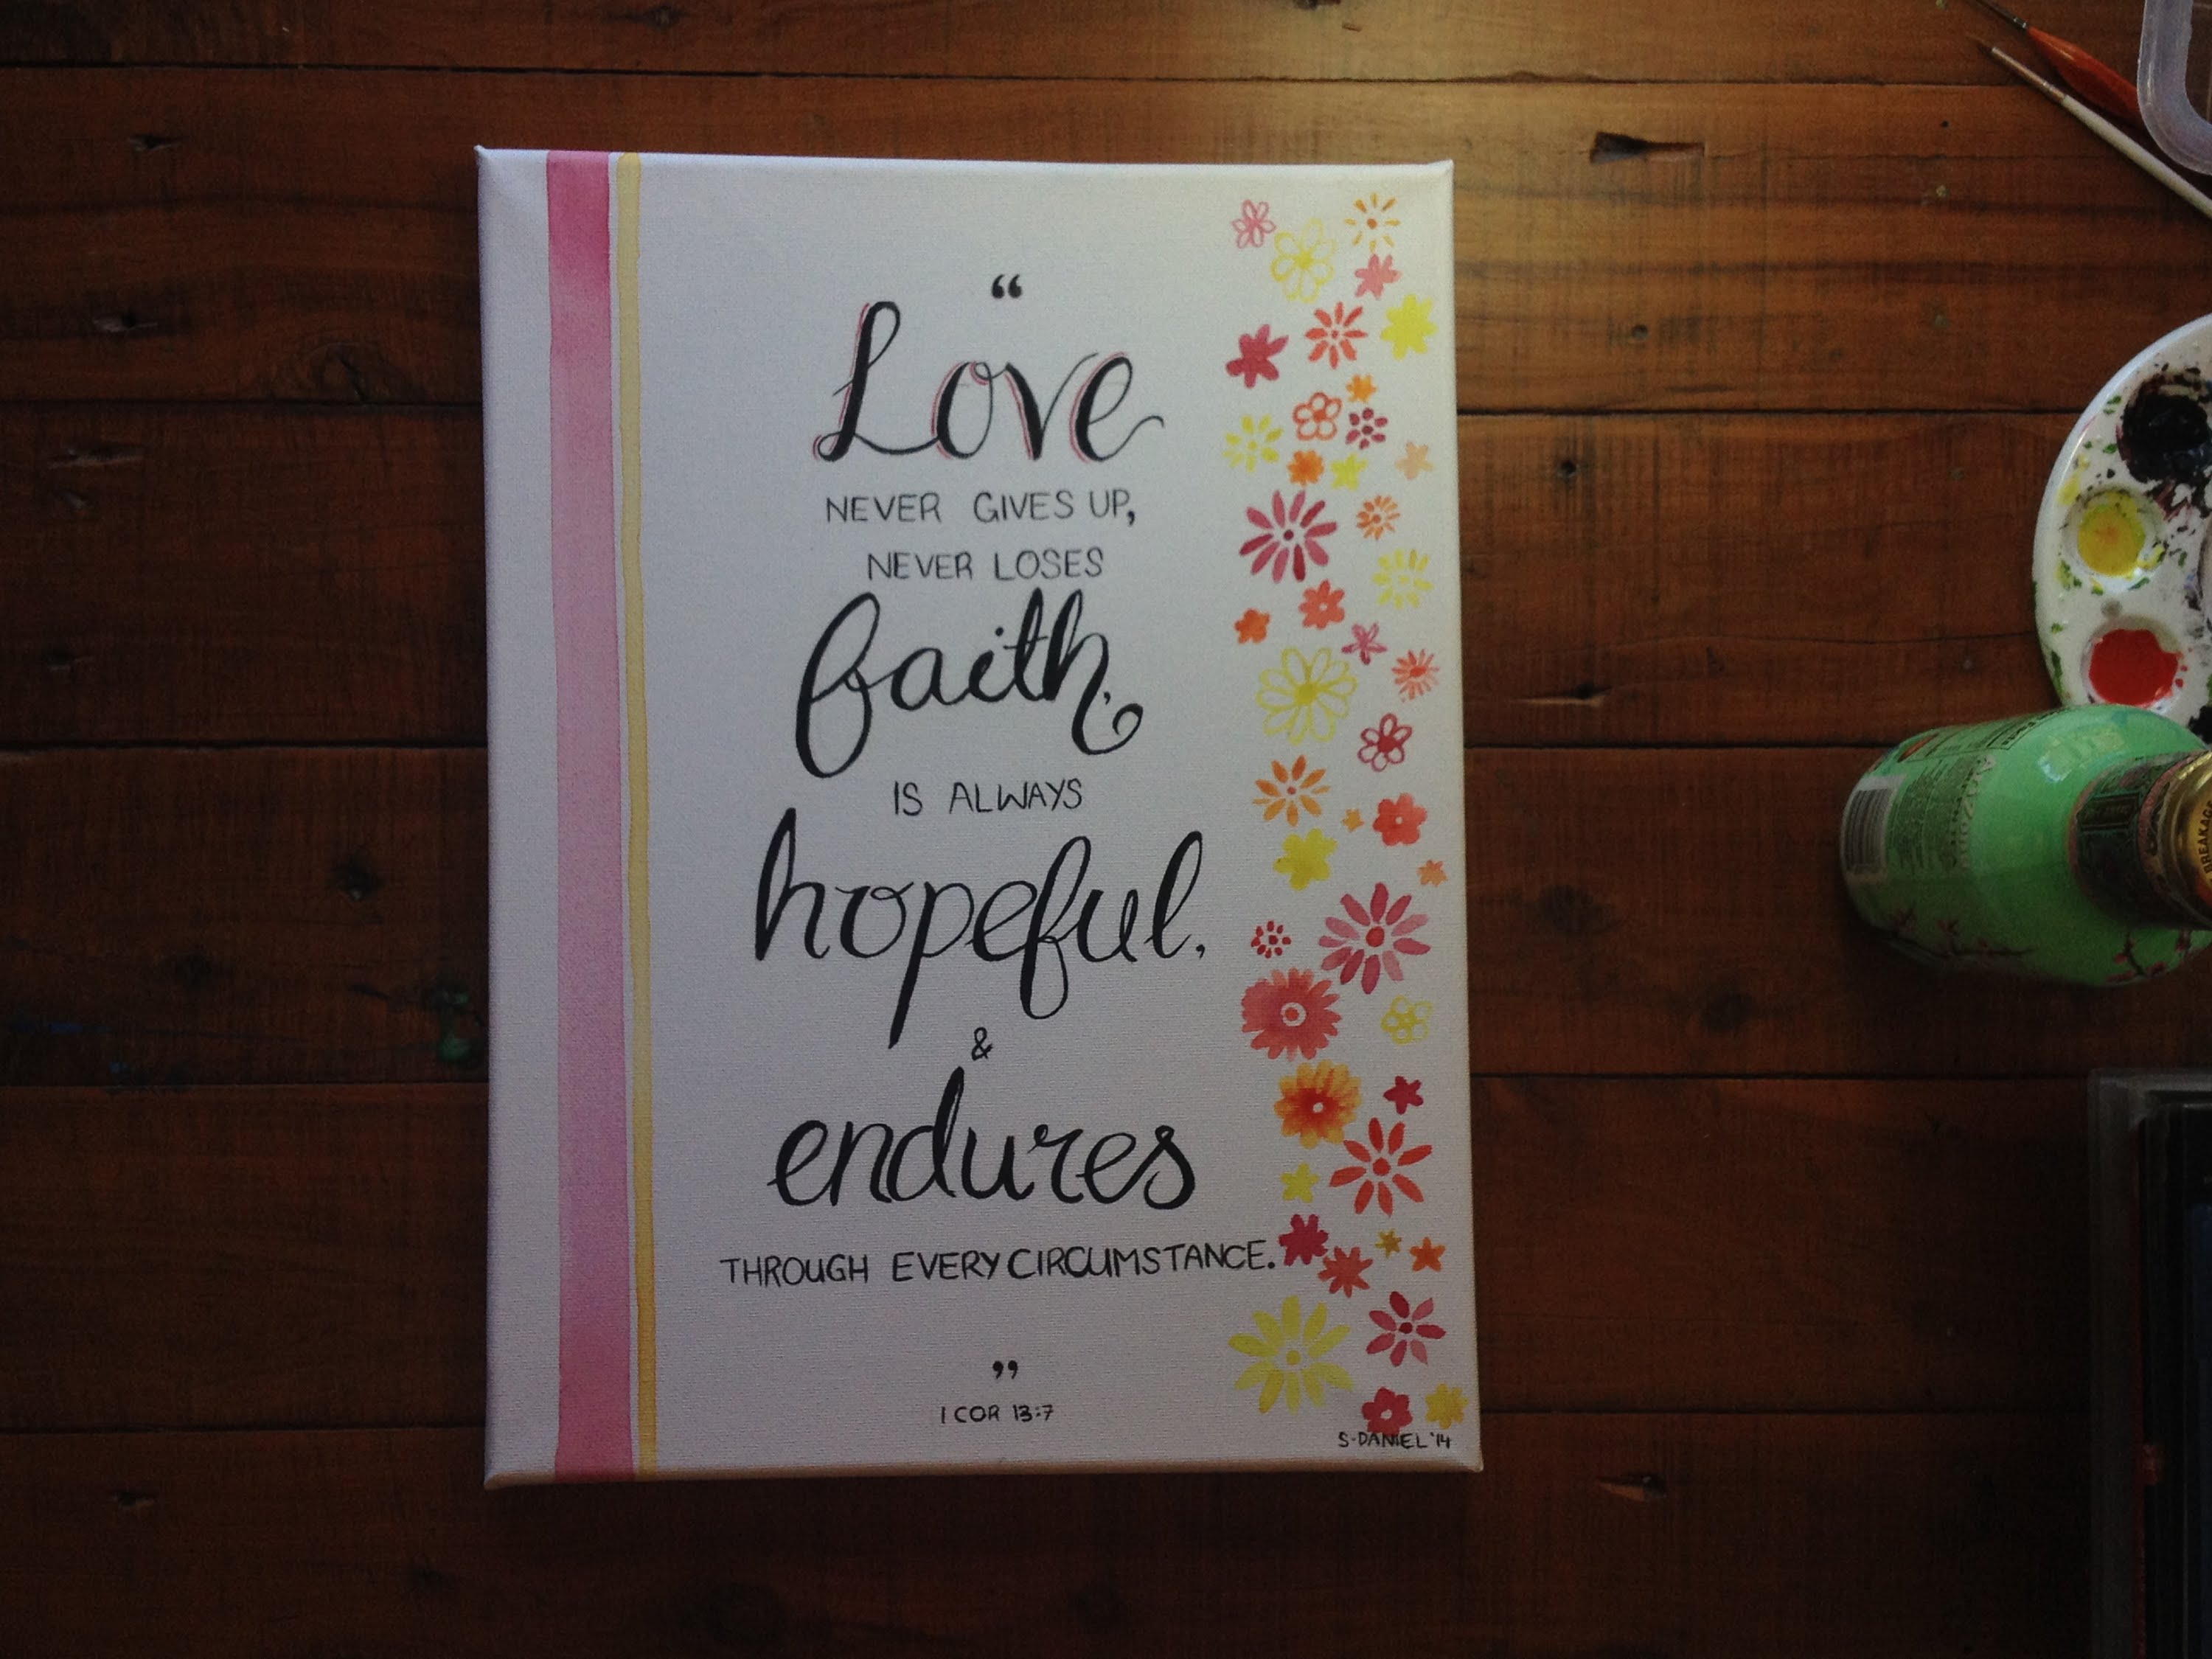 “
Love
NEVER GIVES UP,
NEVER LOSES
faith,
IS ALWAYS
hopeful,
&
endures
THROUGH EVERY CIRCUMSTANCE.
”
1 COR 13:7
S-DANIEL '14
BREAKAGE